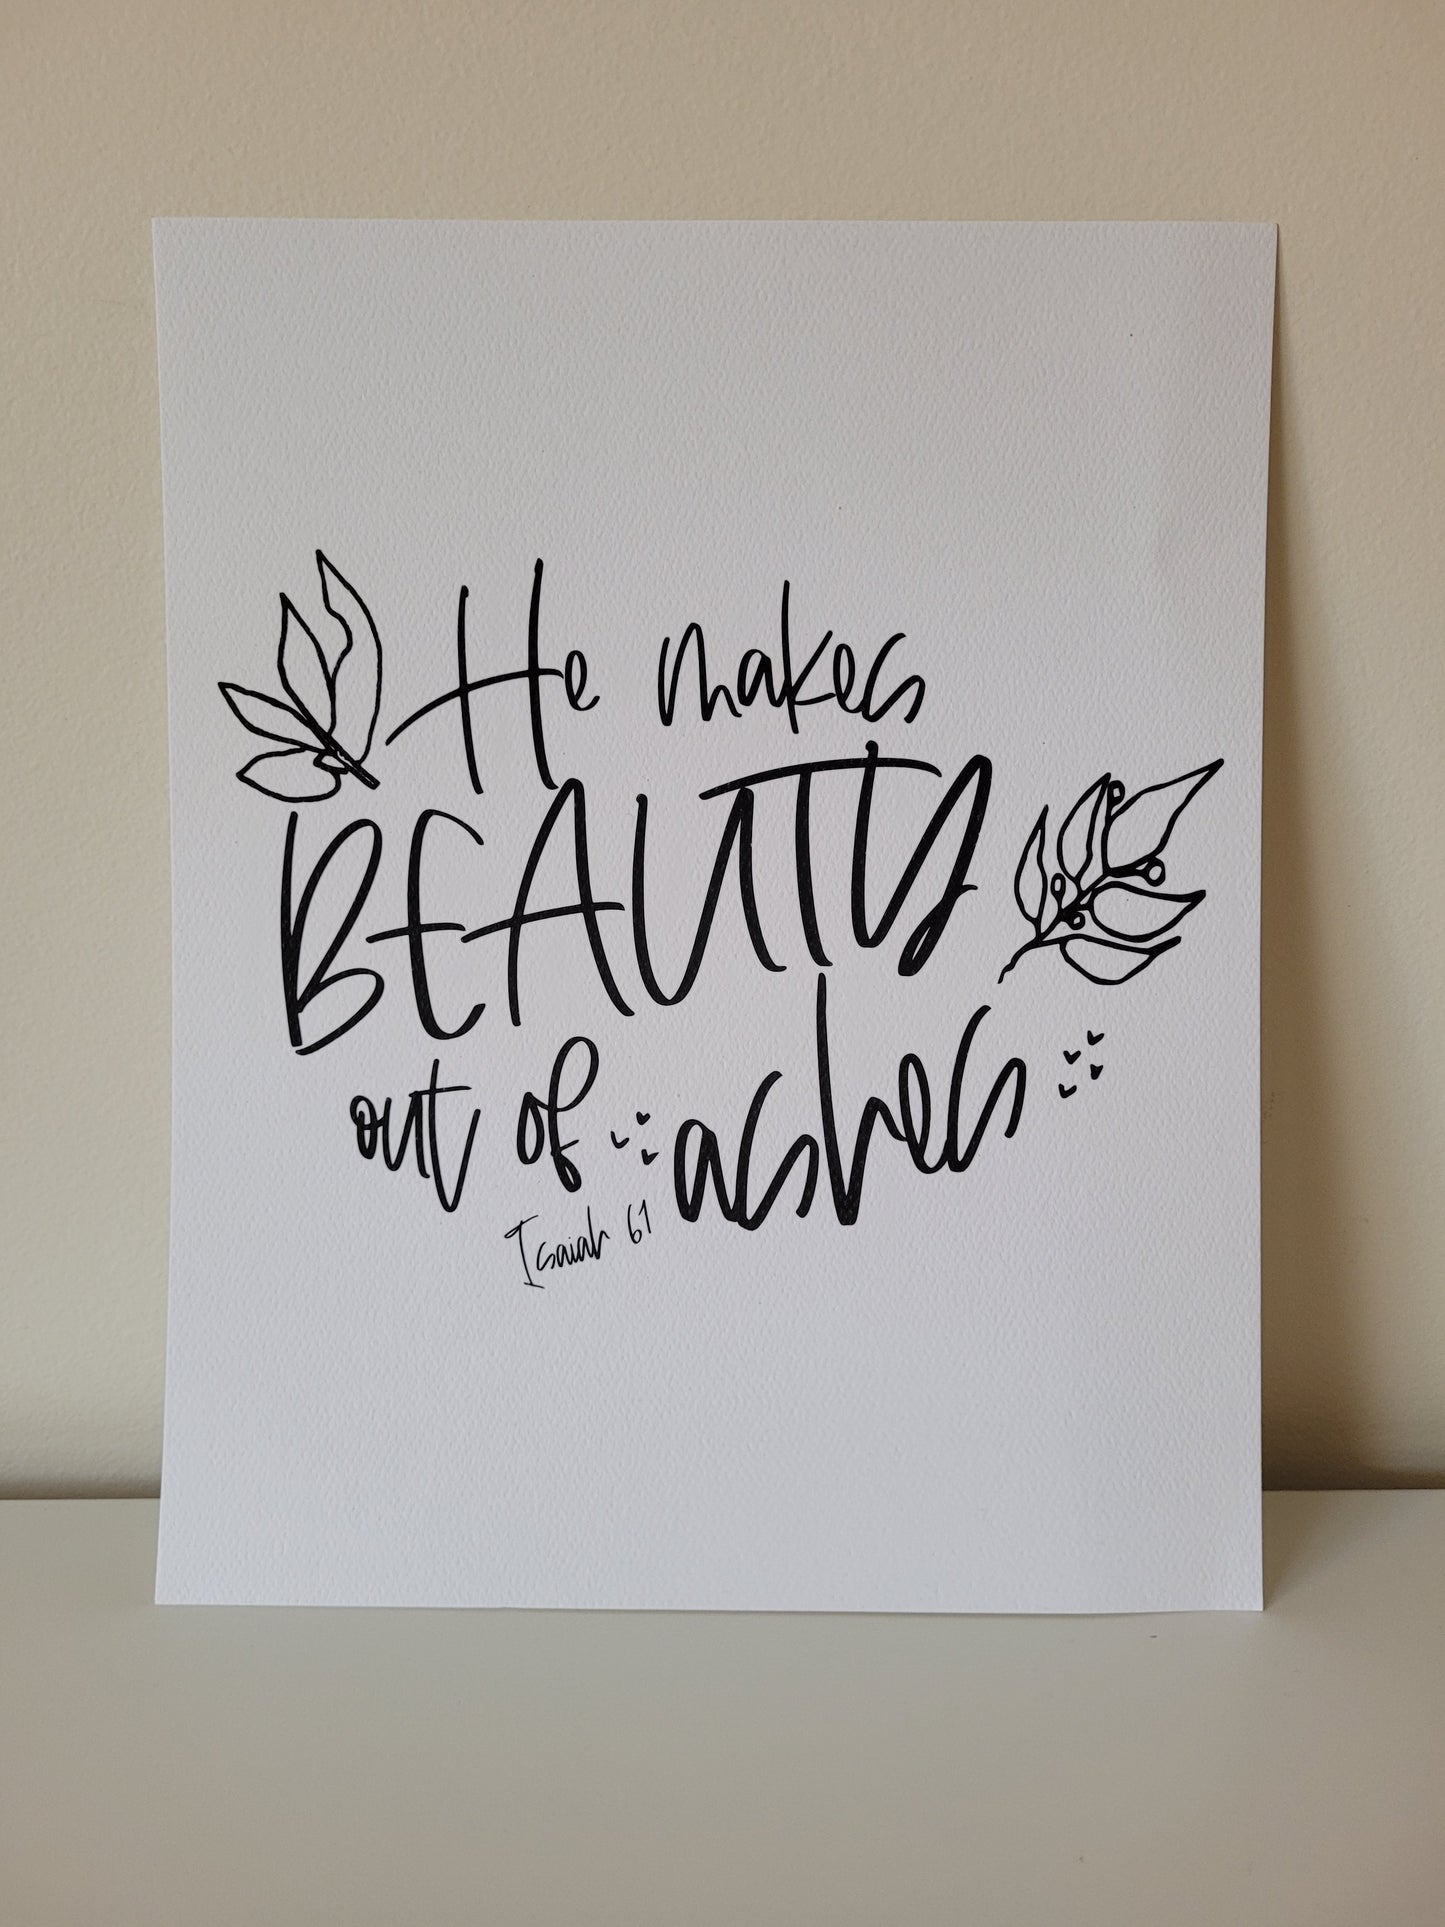 He makes
BEAUTY
out of ashes
Isaiah 61